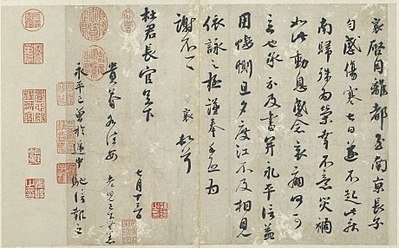 襄啓自離都至南京長子
勻感傷寒七日遂不起此疾
南歸殊為榮幸不意災禍
如此動息感念哀痛何可
言也承示及書并永平信益
用悽惻旦夕度江不及相見
依詠之極謹奉手啓為
謝不一一 襄頓首
杜君長官足下
七月十三日
貴眷各佳安
永平已曾於遞中馳信報之